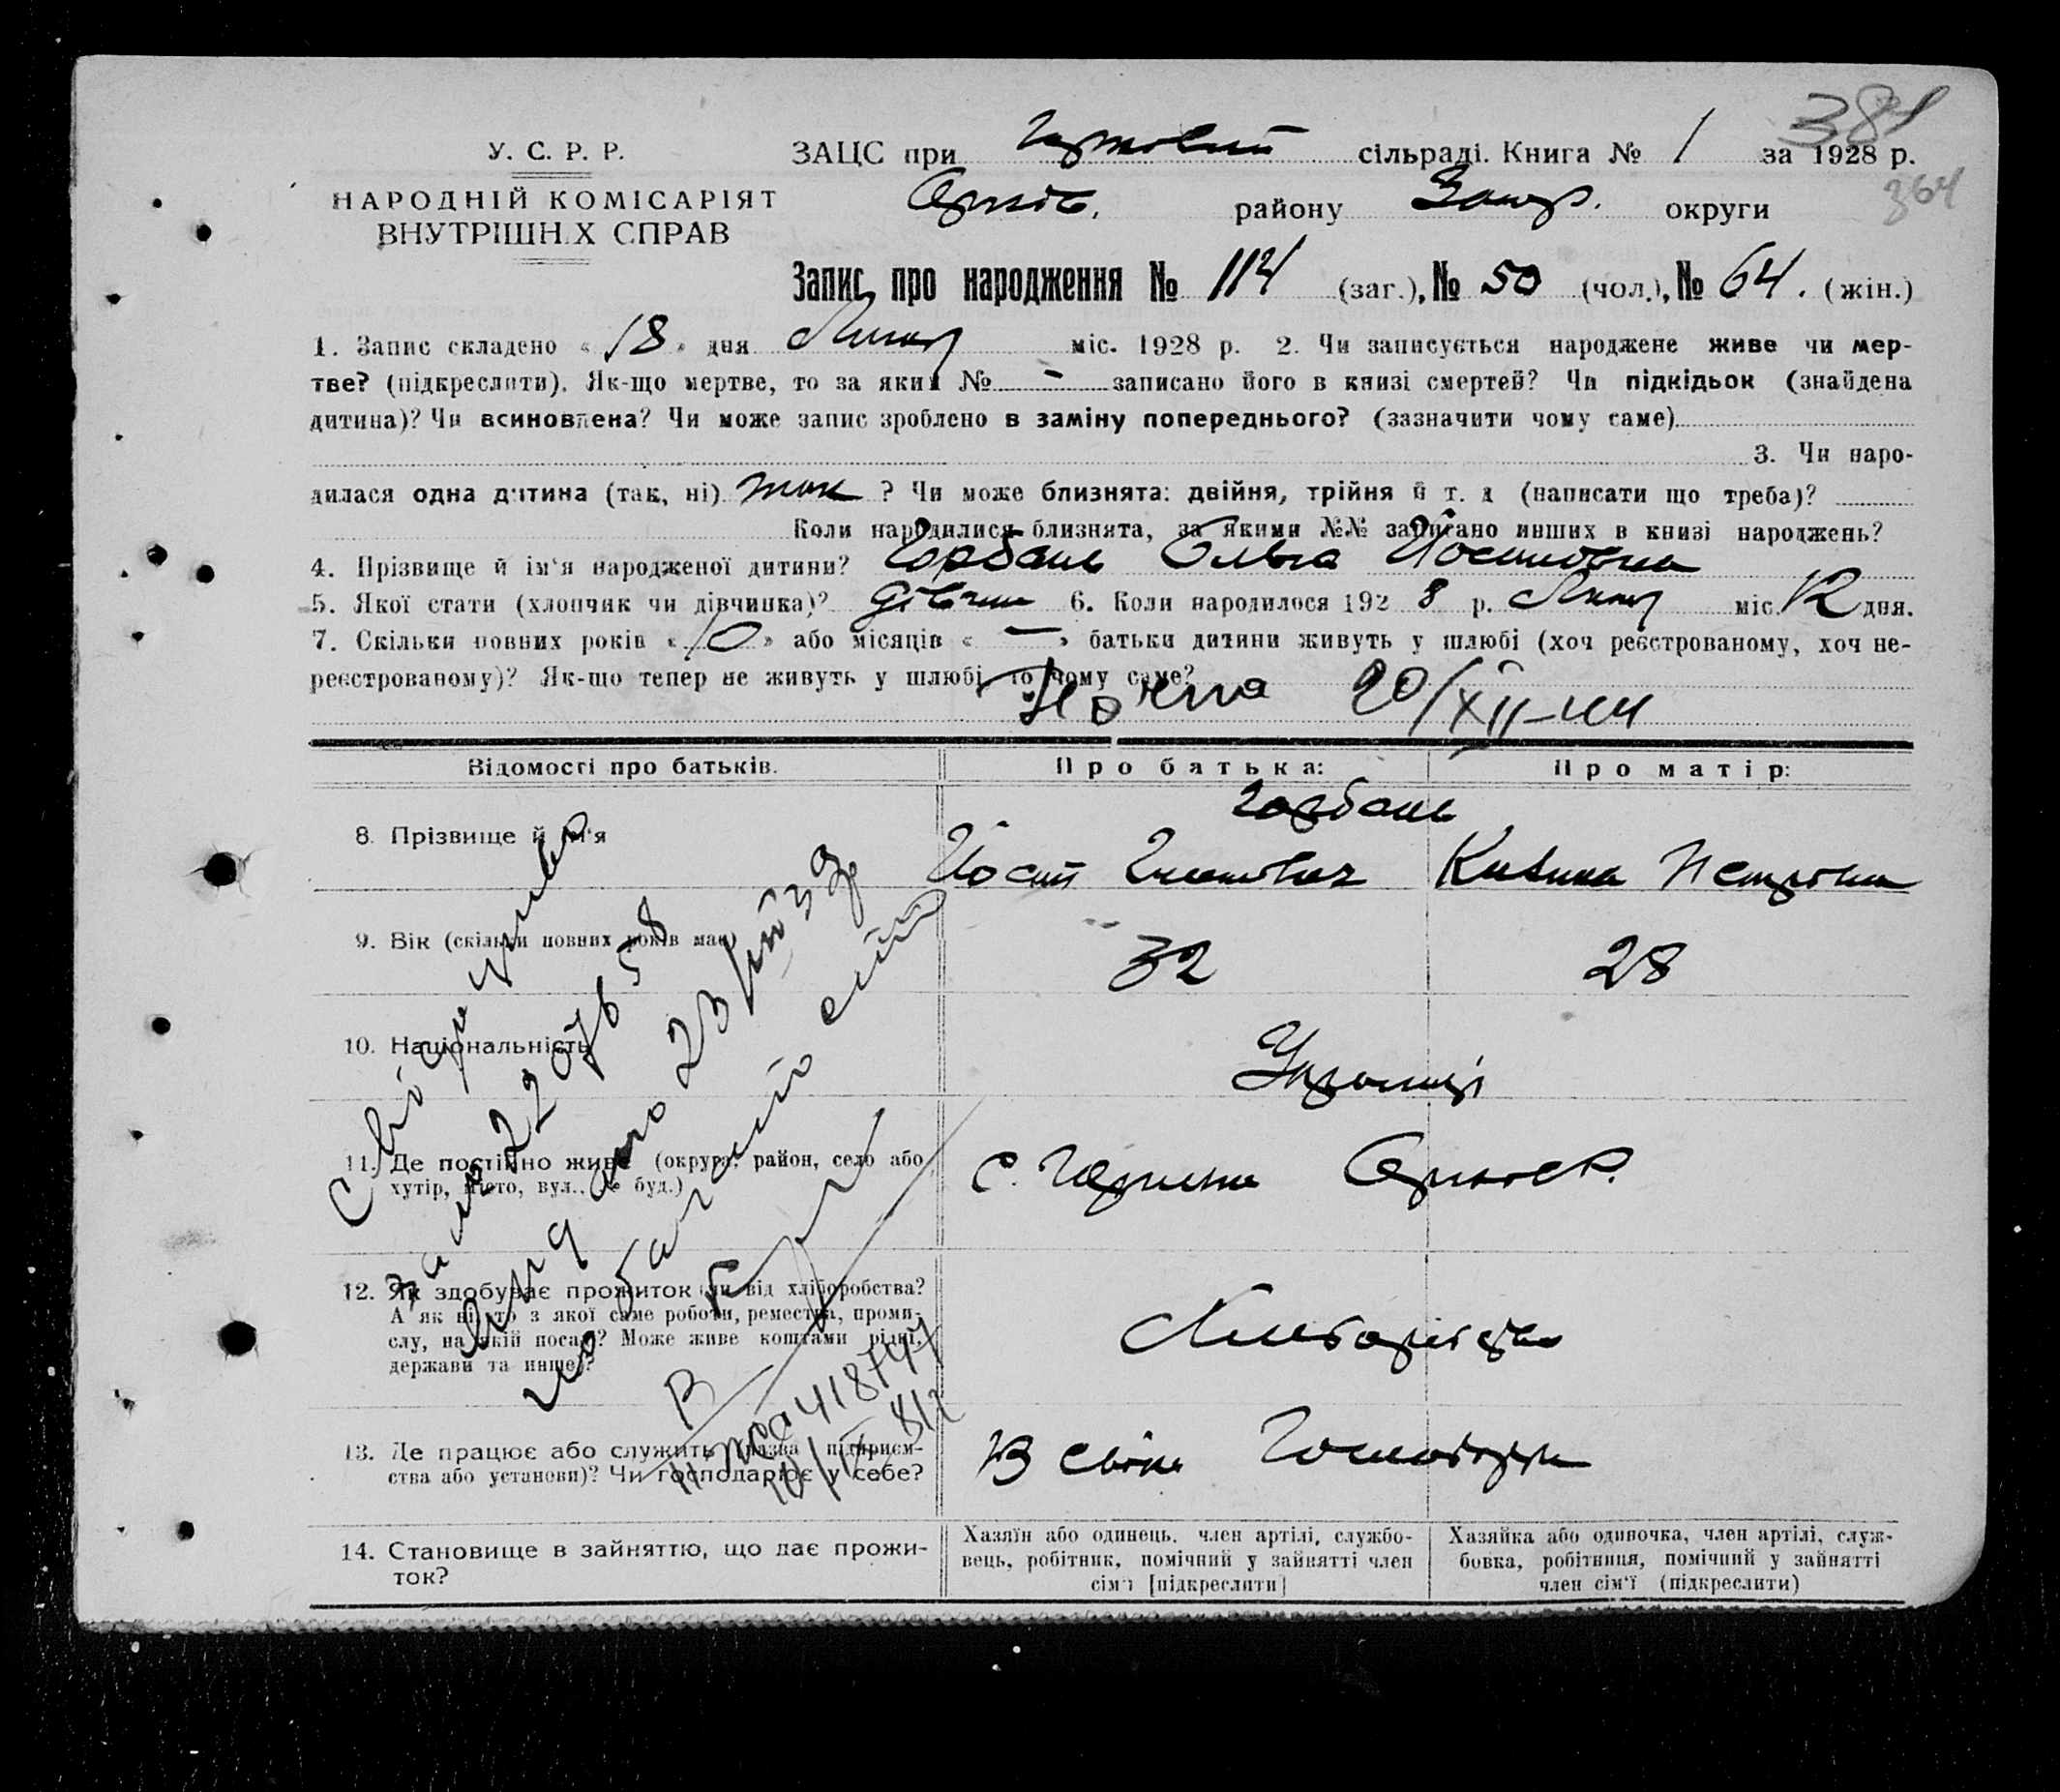 381
У. С. Р. Р.
ЗАЦС при сільраді. Книга № 1 за 1928 р.
364
НАРОДНІЙ КОМІСАРІЯТ
ВНУТРІШНІХ СПРАВ
району Запор. округи
Запис про народження № 114 (заг.), № 50 (чол.), № 64. (жін.)
1. Запис складено « 18 » дня міс. 1928 р. 2. Чи записується народжене живе чи мер-
тве? (підкреслити). Як-що мертве, то за яким № - записано його в книзі смертей? Чи підкідьок (знайдена
дитина)? Чи всиновлена? Чи може запис зроблено в заміну попереднього? (зазначити чому саме)
3. Чи наро-
дилася одна дитина (так, ні) так ? Чи може близнята: двійня, трійня й т. д (написати що треба)?
Коли народилися близнята, за якими №№ записано инших в книзі народжень?
4. Прізвище й ім'я народженої дитини? Горбань Ольга Йосиповна
5. Якої стати (хлопчик чи дівчинка)? дівчин 6. Коли народилося 192 8 р. міс. 12 дня.
7. Скільки повних років « 10 » або місяців « — » батьки дитини живуть у шлюбі (хоч реєстрованому, хоч не-
реєстрованому)? Як-що тепер не живуть у шлюбі, то чому саме?
20/XII-44
Відомості про батьків.
Про батька:
Про матір:
Горбань
8. Прізвище й ім'я
Йосип Петровна
9. Вік (скільки повних років має)
32 28
10. Національність
Українці
11. Де постійно живе (округа, район, село або
хутір, місто, вул., № буд.)
с.
12. Як здобуває прожиток чи від хліборобства?
А як ні, то з якої саме роботи, ремества, проми-
слу, на якій посаді? Може живе коштами рідні,
держави та инше?
13. Де працює або служить (назва підприєм-
ства або установи)? Чи господарює у себе?
В своїм господар
14. Становище в зайняттю, що дає прожи-
ток?
Хазяїн або одинець, член артілі, службо-
вець, робітник, помічний у зайнятті член
сім'ї [підкреслити]
Хазяйка або одиночка, член артілі, служ-
бовка, робітниця, помічний у зайнятті
член сім'ї (підкреслити)